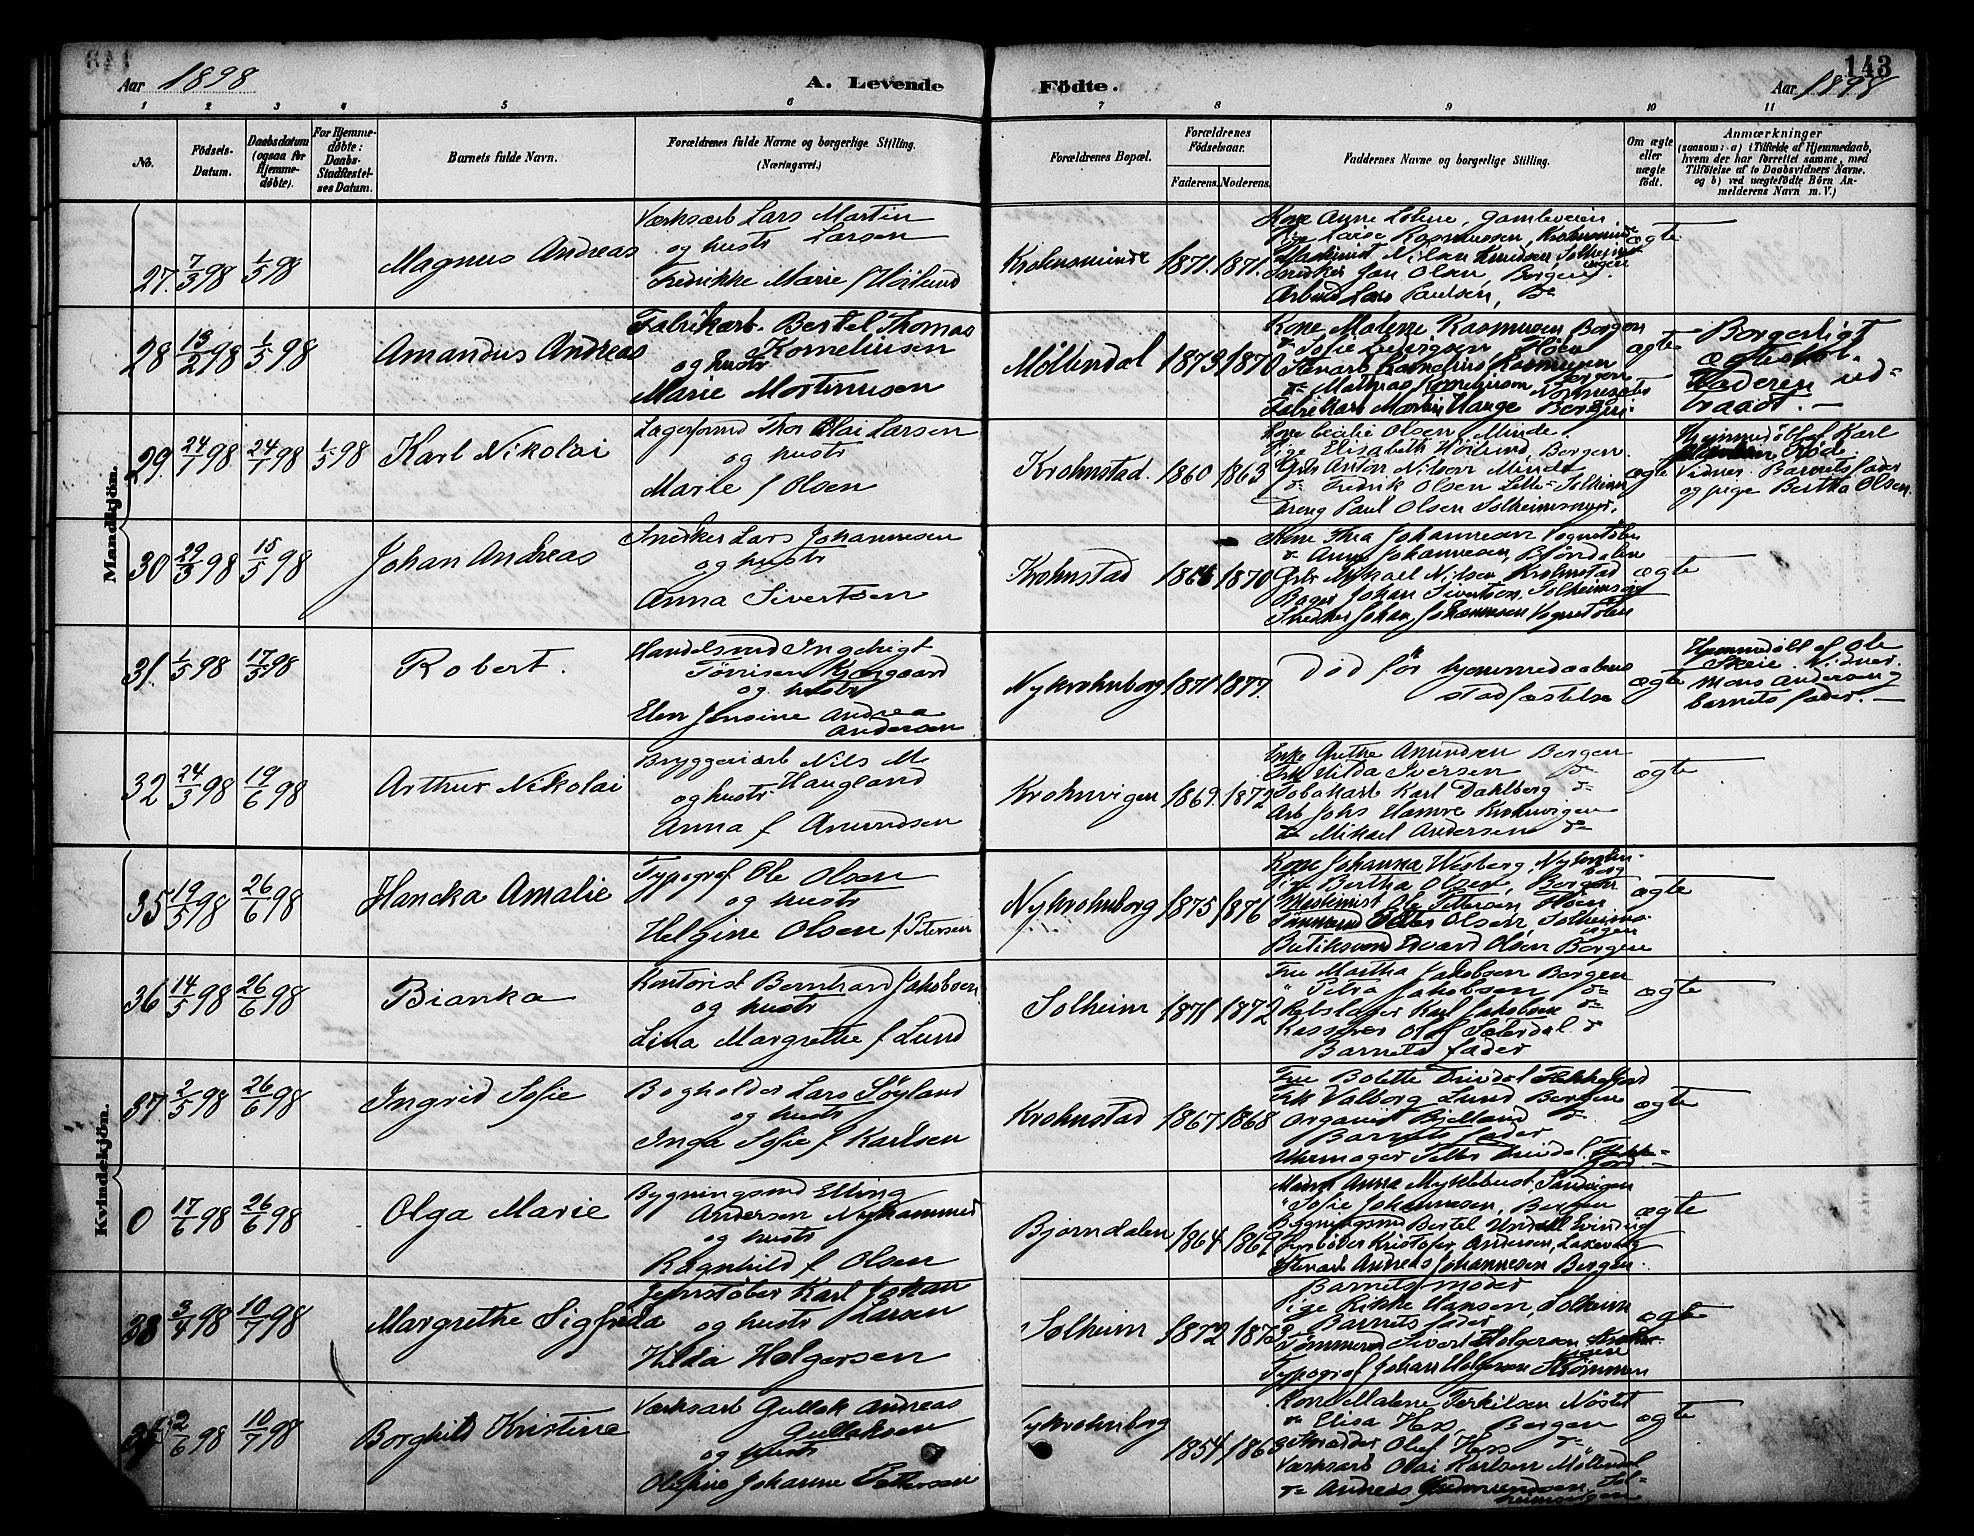 143
Aar 1898 A. Levende Födte. Aar 1898
1 2 3 4 5 6 7 8 9 10 11
No.
Födsels-Datum.
Daabsdatum (ogsaa for Hjemme-döbte).
For Hjemme-döbte: Daabs-Stadfæstel-ses Datum.
Barnets fulde Navn.
Forældrenes fulde Navne og borgerlige Stilling. (Næringsvei.)
Forældrenes Bopæl.
Forældrenes Födselsaar.
Faderens. Moderens.
Faddernes Navne og borgerlige Stilling.
Om ægte eller uægte födt.
Anmærkninger
(saasom: a) i Tilfælde af Hjemmedaab,
hvem der har forrettet samme, med
Tilföielse af to Daabsvidners Navne.
og b) ved uægtefödte Börn An-
melderens Navn m. V.)
Mandkjön.
27. 7/3 98 1/5 98 Magnus Andreas
Værksarb Lars Martin
Larsen
og hustr
Fredrikke Marie f Höilund
Krohnsminde 1871. 1871.
Kone Anne Lohne, Gamleveien.
Pige Larse Rasmussen, Krohnsminde
Maskinist Nilsen Knudsen Solheims-
Snedker Jan Olsen, Bergen
Arbmd Lars Paulsen, Do
ægte
28 13/2 98 1/5 98 Amandus Andreas
Fabrikarb. Bertel Thomas
Korneliusen
og hustr
Marie Mortinusen
Møllendal 1873 1870
Kone Malene Rasmussen Bergen
Fabrikarb Martin Hauge Bergen
ægte
Borgerligt
Faderen ud-
traadt. —
29. 24/1 98 24/1 98 1/5 98 Karl Nikolai
Lagerformd Thor Olai Larsen
og hustr
Marie f Olsen
Krohnstad. 1860 1863
Kone Cecilie Olsen Minde.
Pige Elisabeth Höilund, Bergen.
Gbr Anton Nilsen Minde
do Fredrik Olsen Lille-Solheim
Dreng Paul Olsen Solheimsmyr.
ægte
Hjemmedøbt af Karl
Vidner Barnets fader
og pige Bertha Olsen.
30 29/3 98 15/5 98 Johan Andreas
Snedker Lars Johannesen
og hustr
Anna Sivertsen
Krohnstad 1870
Kone Thea Johannesen Vognstølen
do Anna Johannesen, Bjøndalen
Gbr Mikael Nilsen Krohnstad
Bager Johan Sivertsen, Solheimsvig
Snedker Johan Johannesen Vognstølen
ægte
31. 1/5 98 17/5 98 Robert.
Handelsmd Ingebrigt
Tørrisen Kjærgaard
og hustr
Elen Jensine Andrea
Andersen
Nykrohnborg 1871. 1877.
Død før hjemmedaabens
stadfæstelse
ægte
Hjemmedøbt af Ole
Skeie. Vidner
Mons Andersen og
barnets fader. —
32 24/3 98 19/6 98 Arthur Nikolai
Bryggeriarb Nils M.
Haugland
og hustr
Anna f Amundsen
Krohnvigen 1869. 1872
Enke Grethe Amundsen Bergen
Frk Hilda Iversen do
Tobakarb Karl Dahlberg do
Arb Johs Hamre Krohnvigen
do Mikael Andersen do
ægte
Kvindekjön.
35 19/5 98 26/6 98 Hancka Amalie
Typograf Ole Olsen
og hustr
Helgine Olsen f Petersen
Nykrohnborg 1875 1876
Kone Johanna Wesberg, Nykrohn-
borg
Pige Bertha Olsen, Bergen
Maskinist Ole Petersen Høien
Tømmermd Peter Olsen, Solheims-
vigen
Butiksmd Edvard Olsen Bergen
ægte
36 14/5 98 26/6 98 Bianka
Kontorist Bernhard Jakobsen
og hustr
Lina Margrethe f Lund
Solheim 1871 1872
Fru Martha Jakobsen Bergen
" Petra Jakobsen do
Rebslager Karl Jakobsen do
Kasserer Olaf Sæterdal do
Barnets fader
ægte
37. 2/5 98 26/6 98 Ingrid Sofie
Bogholder Lars Søyland
og hustr
Inga Sofie f Karlsen
Krohnstad 1867 1868
Fru Bolette Tendal Flekkefjord
Frk Valborg Lund Bergen
Organist Bjelland do
Barnets fader
Uhrmager Peter Tendal. Flekke-
fjord. —
ægte
0 17/6 98 26/6 98 Olga Marie
Bygningsmd Elling
Andersen Nyhammer
og hustr
Ragnhild f Olsen
Bjørndalen 1864 1869
Madm Anna Myklebust, Sandvigen
" Sofie Johannesen, Bergen
Bygningsmd Bertel
Fyrbøder Kristofer Andersen, Laxevaag
Stenarb Andreas Johannesen Bergen.
ægte
38 3/4 98 10/7 98 Margrethe Sigfrida
Jernstøber Karl Johan
Larsen
og hustr
Hilda Holgersen
Solheim 1872 1873
Barnets moder
Pige Rikke Hansen Solheim
Barnets fader
Tømmermd Sivert Holgersen
Typograf Johan Holgersen Strømmen
ægte
2/6 98 10/7 98 Borghild Kristine
Værksarb Gullak Andreas
Gullaksen
og hustr
Olefine Johanne Pettersen
Nykrohnborg 1854 186
Kone Malene Terkilsen Nøstet
do Elisa Hess, Bergen
Olaf Hess do
Værksarb Olai Karlsen Møllendal
do Andreas Gudmundsen Sol-
heimsvigen
ægte